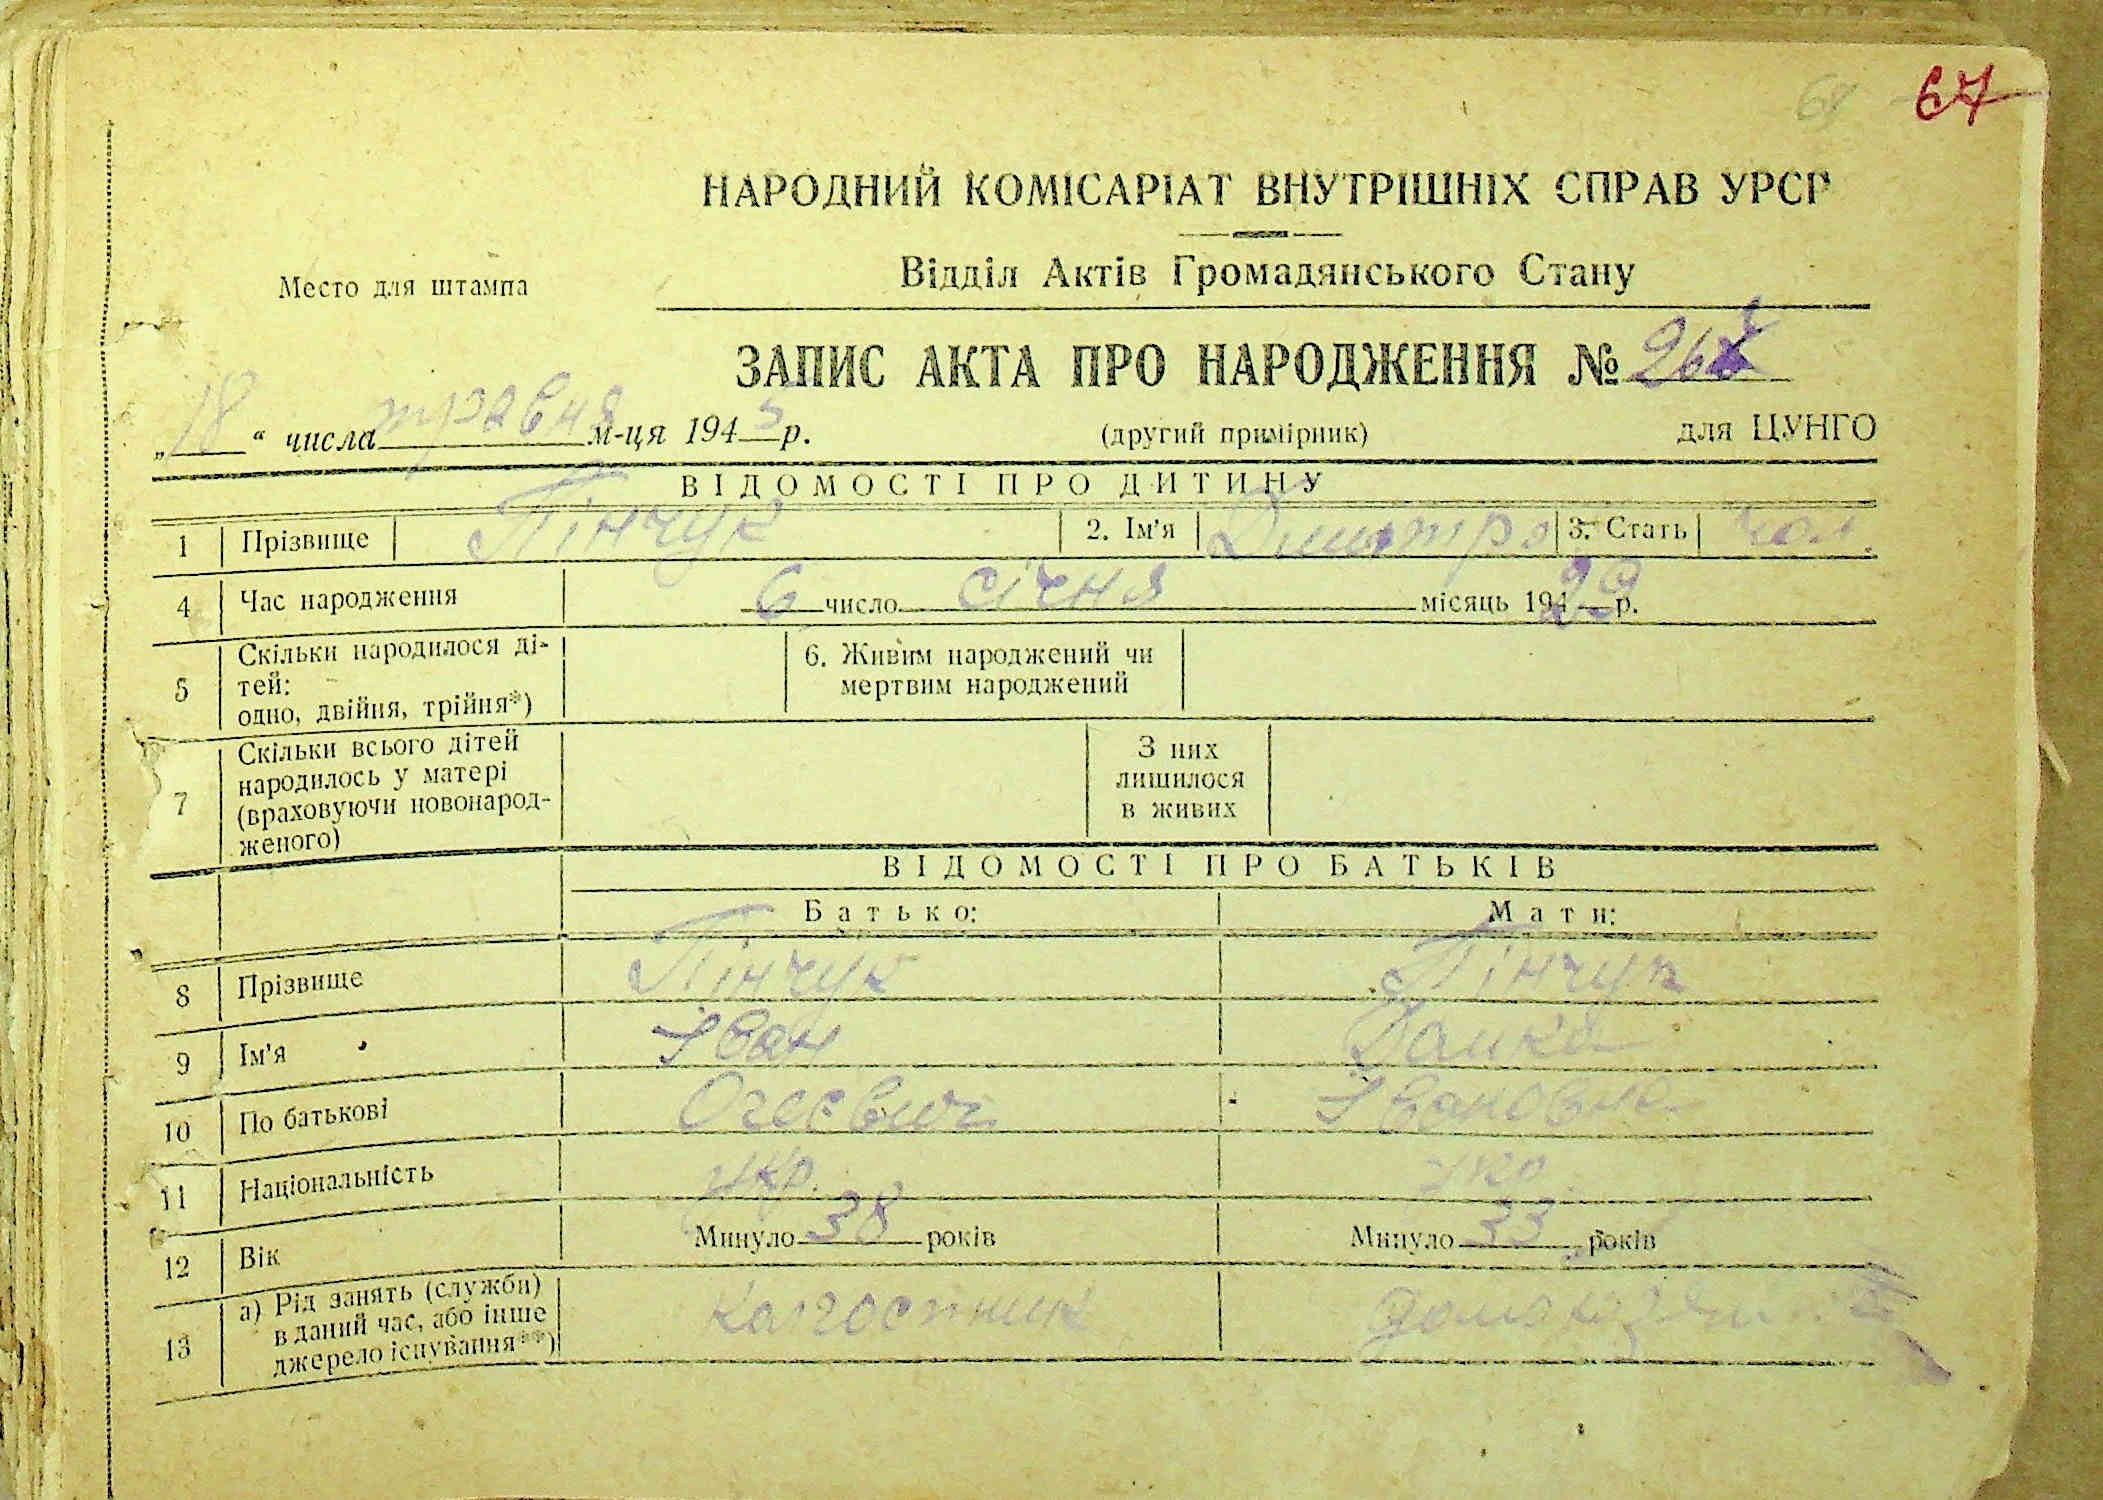 67
НАРОДНИЙ КОМІСАРІАТ ВНУТРІШНІХ СПРАВ УРСР
Место для штампа
Відділ Актів Громадянського Стану
ЗАПИС АКТА ПРО НАРОДЖЕННЯ №
„18“ числа травня м-ця 1945 р. (другий примірник) для ЦУНГО
ВІДОМОСТІ ПРО ДИТИНУ
1 Прізвище Пінчук 2. Ім'я Дмитро 3. Стать чол.
4 Час народження 6 число січня місяць 194 29 р.
5 Скільки народилося ді-
тей:
одно, двійня, трійня*)
6. Живим народжений чи
мертвим народжений
7 Скільки всього дітей
народилось у матері
(враховуючи новонарод-
женого)
З них
лишилося
в живих
ВІДОМОСТІ ПРО БАТЬКІВ
Батько: Мати:
8 Прізвище Пінчук Пінчук
9 Ім'я Іван
10 По батькові Івановна
11 Національність укр. укр.
12 Вік Минуло 38 років Минуло 33 років
13 а) Рід занять (служби)
в даний час, або інше
джерело існування**)
колгоспник